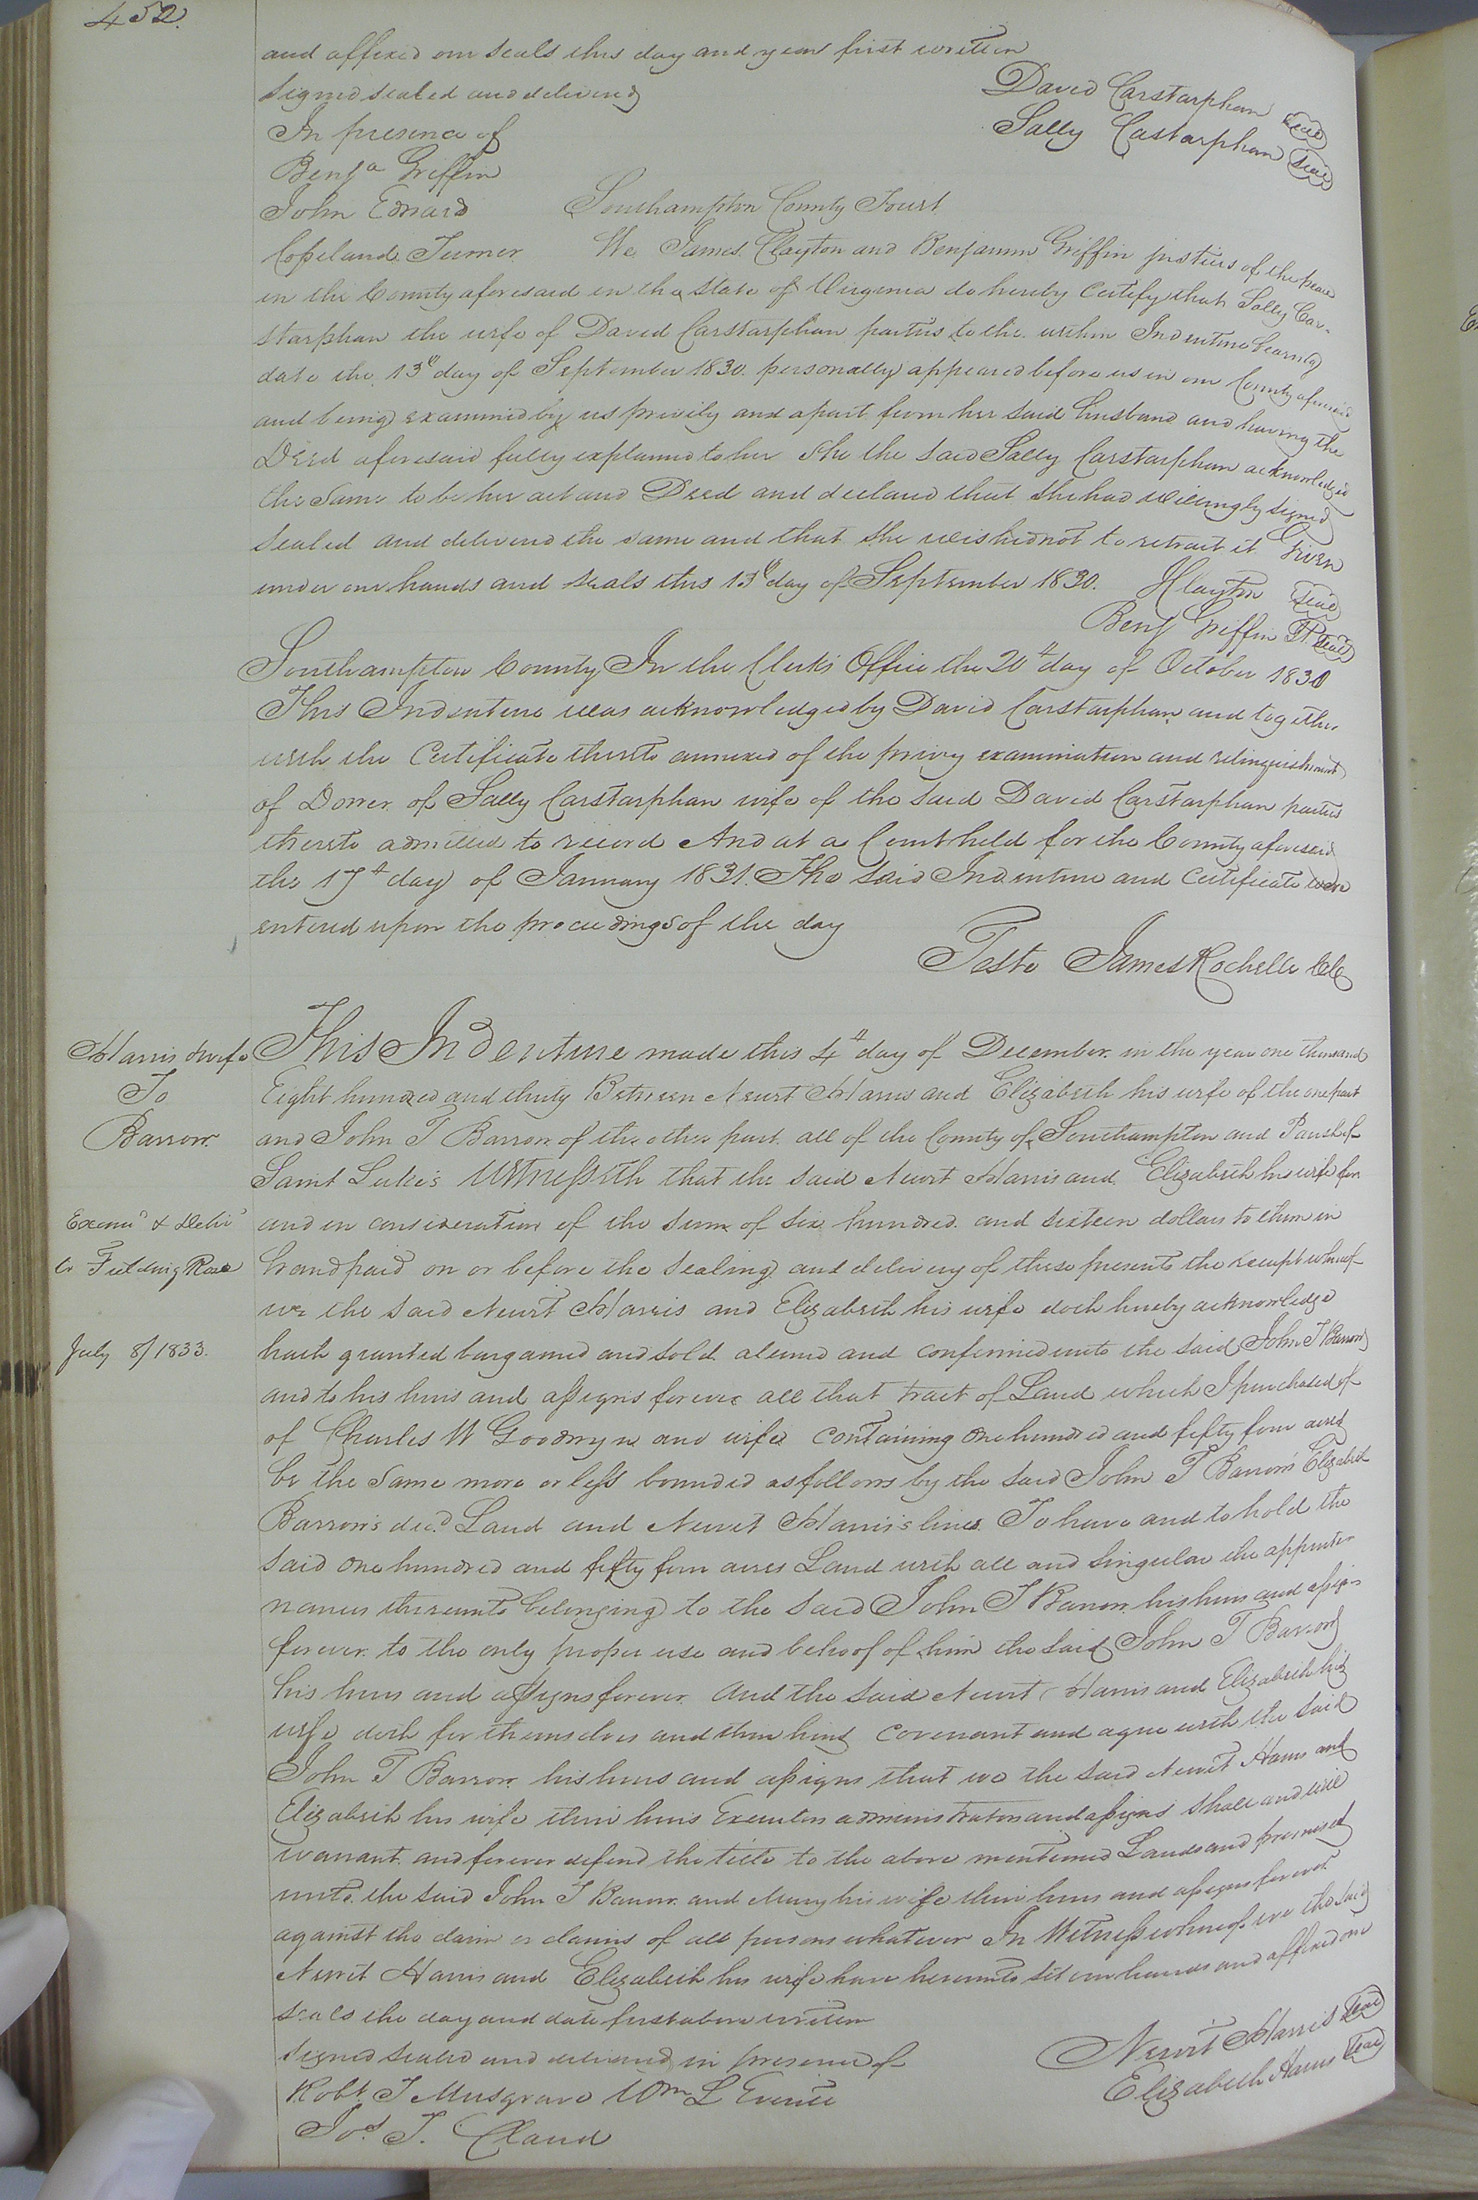 452.
and affixed our seals this day and year first written
Signed sealed and delivered
David Carstarphen seal
In presence of
Sally Castarphen seal
Benja Griffin
John Edward Southampton County Court
Copeland Turner We James Clayton and Benjamin Griffin justices of the peace
in the County aforesaid in the State of Virginia do hereby certify that Sally Car-
starphen the wife of David Carstarphen parties to the within Indenture bearing
date the 13th day of September 1830. personally appeared before us in our County aforesaid
and being examined by us privily and apart from her said husband and having the
Deed aforesaid fully explained to her She the said Sally Carstarphen acknowledged
the same to be her act and Deed and declared that she had willingly signed
sealed and delivered the same and that she wished not to retract it Given
under our hands and seals this 13th day of September 1830. J Clayton seal
Benj Griffin JP seal
Southampton County In the Clerks Office the 20th day of October 1830
This Indenture was acknowledged by David Carstarphen and together
with the Certificate thereto annexed of the privy examination and relinquishment
of Dower of Sally Carstarphen wife of the said David Carstarphen parties
thereto admitted to record And at a Court held for the County aforesaid
the 17th day of January 1831. The said Indenture and Certificate were
entered upon the proceedings of the day
Teste James Rochelle Clk
Harris & wife
To
Barrow
Examd & Deld
to Fielding Rose
July 8/1833.
This Indenture made this 4th day of December in the year one thousand
Eight hundred and thirty Between Newit Harris and Elizabeth his wife of the one part
and John T Barrow of the other part all of the County of Southampton and Parish of
Saint Luke's Witnesseth that the said Newit Harris and Elizabeth his wife for
and in consideration of the sum of six hundred and sixteen dollars to them in
hand paid on or before the sealing and delivery of these presents the receipt whereof
we the said Newit Harris and Elizabeth his wife doth hereby acknowledge
hath granted bargained and sold aliened and confirmed unto the said John T Barrow
and to his heirs and assigns forever all that tract of Land which I purchased of
of Charles W Goodwyn and wife containing one hundred and fifty four acres
be the same more or less bounded as follows by the said John T Barrow's Elizabeth
Barrow's decd Land and Newit Harris's lines To have and to hold the
said one hundred and fifty four acres Land with all and singular the appurte
nances thereunto belonging to the said John T Barrow his heirs and assigns
forever to the only proper use and behoof of him the said John T Barrow
his heirs and assigns forever And the said Newit Harris and Elizabeth his
wife doth for themselves and their heirs covenant and agree with the said
John T Barrow his heirs and assigns that we the said Newit Harris and
Elizabeth his wife their heirs Executors administrators and assigns shall and will
warrant and forever defend the title to the above mentioned Lands and premises
unto the said John T Barrow and Mary his wife their heirs and assigns forever
against the claim or claims of all persons whatever In Witness whereof we the said
Newit Harris and Elizabeth his wife have hereunto set our hands and affixed our
seals the day and date first above written
Signed sealed and delivered in presence of
Newit Harris seal
Robt. T Musgrave Wm L Everitt
Elizabeth Harris seal
Jos. T. Claud